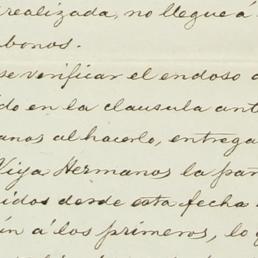 realizada, no llegue á
bonos.
se verificar el endoso
do en la clausula ant
anos al hacerlo, entrega
Viya Hermanos la par
idos desde esta fecha
án á los primeros, lo q